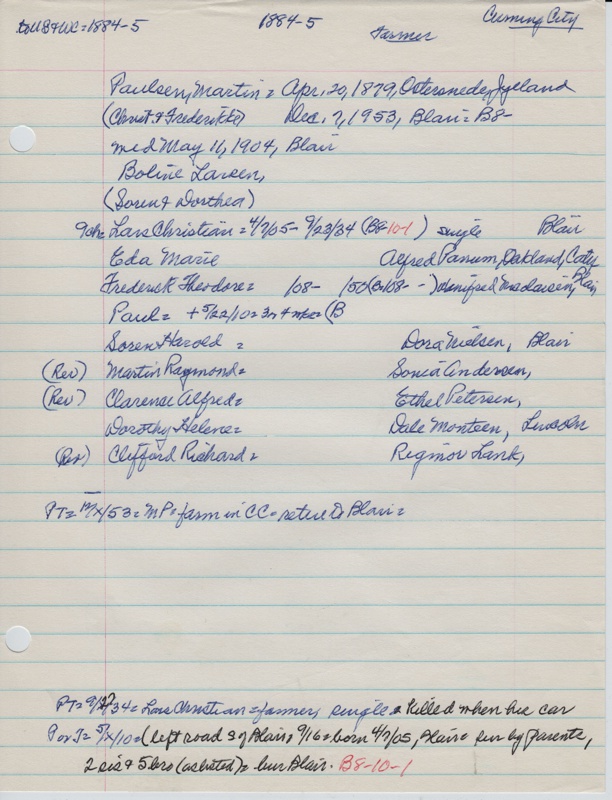 to US & WC = 1884-5 1884-5 Farmer Cuming City
Paulsen, Martin = Apr. 20, 1879, Ostersnede, Jylland
(Christ & Frederikke) Dec. 7, 1953, Blair = B8-
med May 11, 1904, Blair
Boline Larsen,
(Soren & Dorthea)
9ch = Lars Christian = 4/7/05 - 9/23/34 (B8-10-1) single Blair
Eda Marie Alfred Panum, Oakland, Caty
Frederick Theodore = /08- /50 (B8-108- -) Winifred Blair
Paul = + 5/22/10 = 3n + (B
Soren Harold = Dora Nielsen, Blair
(Rev) Martin Raymond = Sonia Andersen,
(Rev) Clarense Alfred = Ethel Petersen,
Dorothy Helene = Dale Monteen, Lincoln
(Rev) Clifford Richard = Rigmor Lank,
PT = /X/53 = MP = farm in CC = retire to Blair =
PT = 9/27/34 = Lars Christian = farmer, single = killed when his car
P or T = 5/X/10 = (left road S of Blair, 9/16 = born 4/7/05, Blair = sur by parents,
2 sis & 5 bro (as listed) = bur Blair. B8-10-1